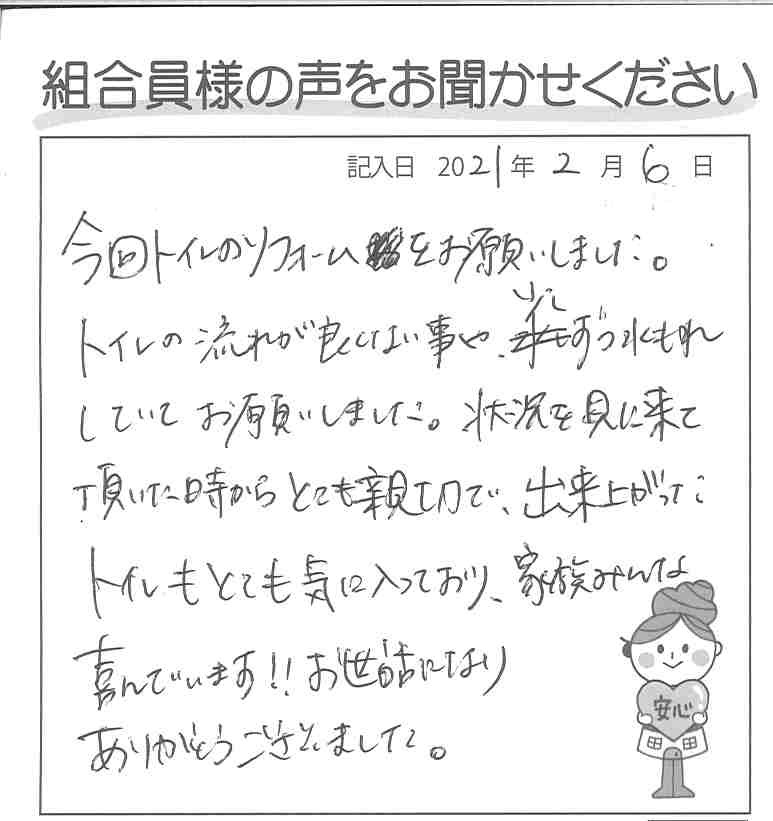 組合員様の声をお聞かせください
記入日 2021年 2月 6日
今回トイレのリフォームをお願いしました。
トイレの流れが良くない事や、少しずつ水もれ
していてお願いしました。状況を見に来て
頂いた時からとても親切で、出来上がった
トイレもとても気に入っており、家族みんな
喜んでいます!!お世話になり
ありがとうございました。
安心